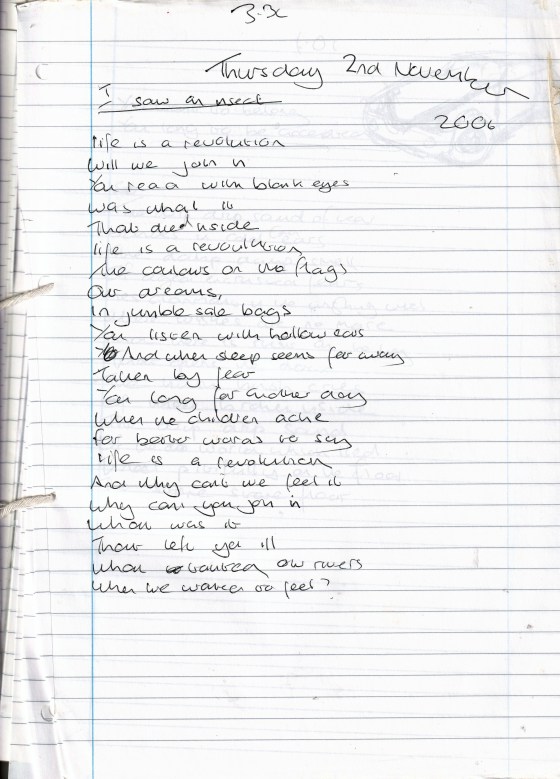 3.30
Thursday 2nd November
2006
I saw an insect
life is a revolution
Will we join in
You read with blank eyes
was what it
That died inside
life is a revolution
the colours on the flags
Our dreams,
In jumble sale bags
You listen with hollow ears
And when sleep seems far away
Taken by fear
You long for another day
When the children ache
for better words to say
life is a revolution
And why can't we feel it
Why can't you join in
What was it
That left you ill
What our rivers
When we wanted to feel?